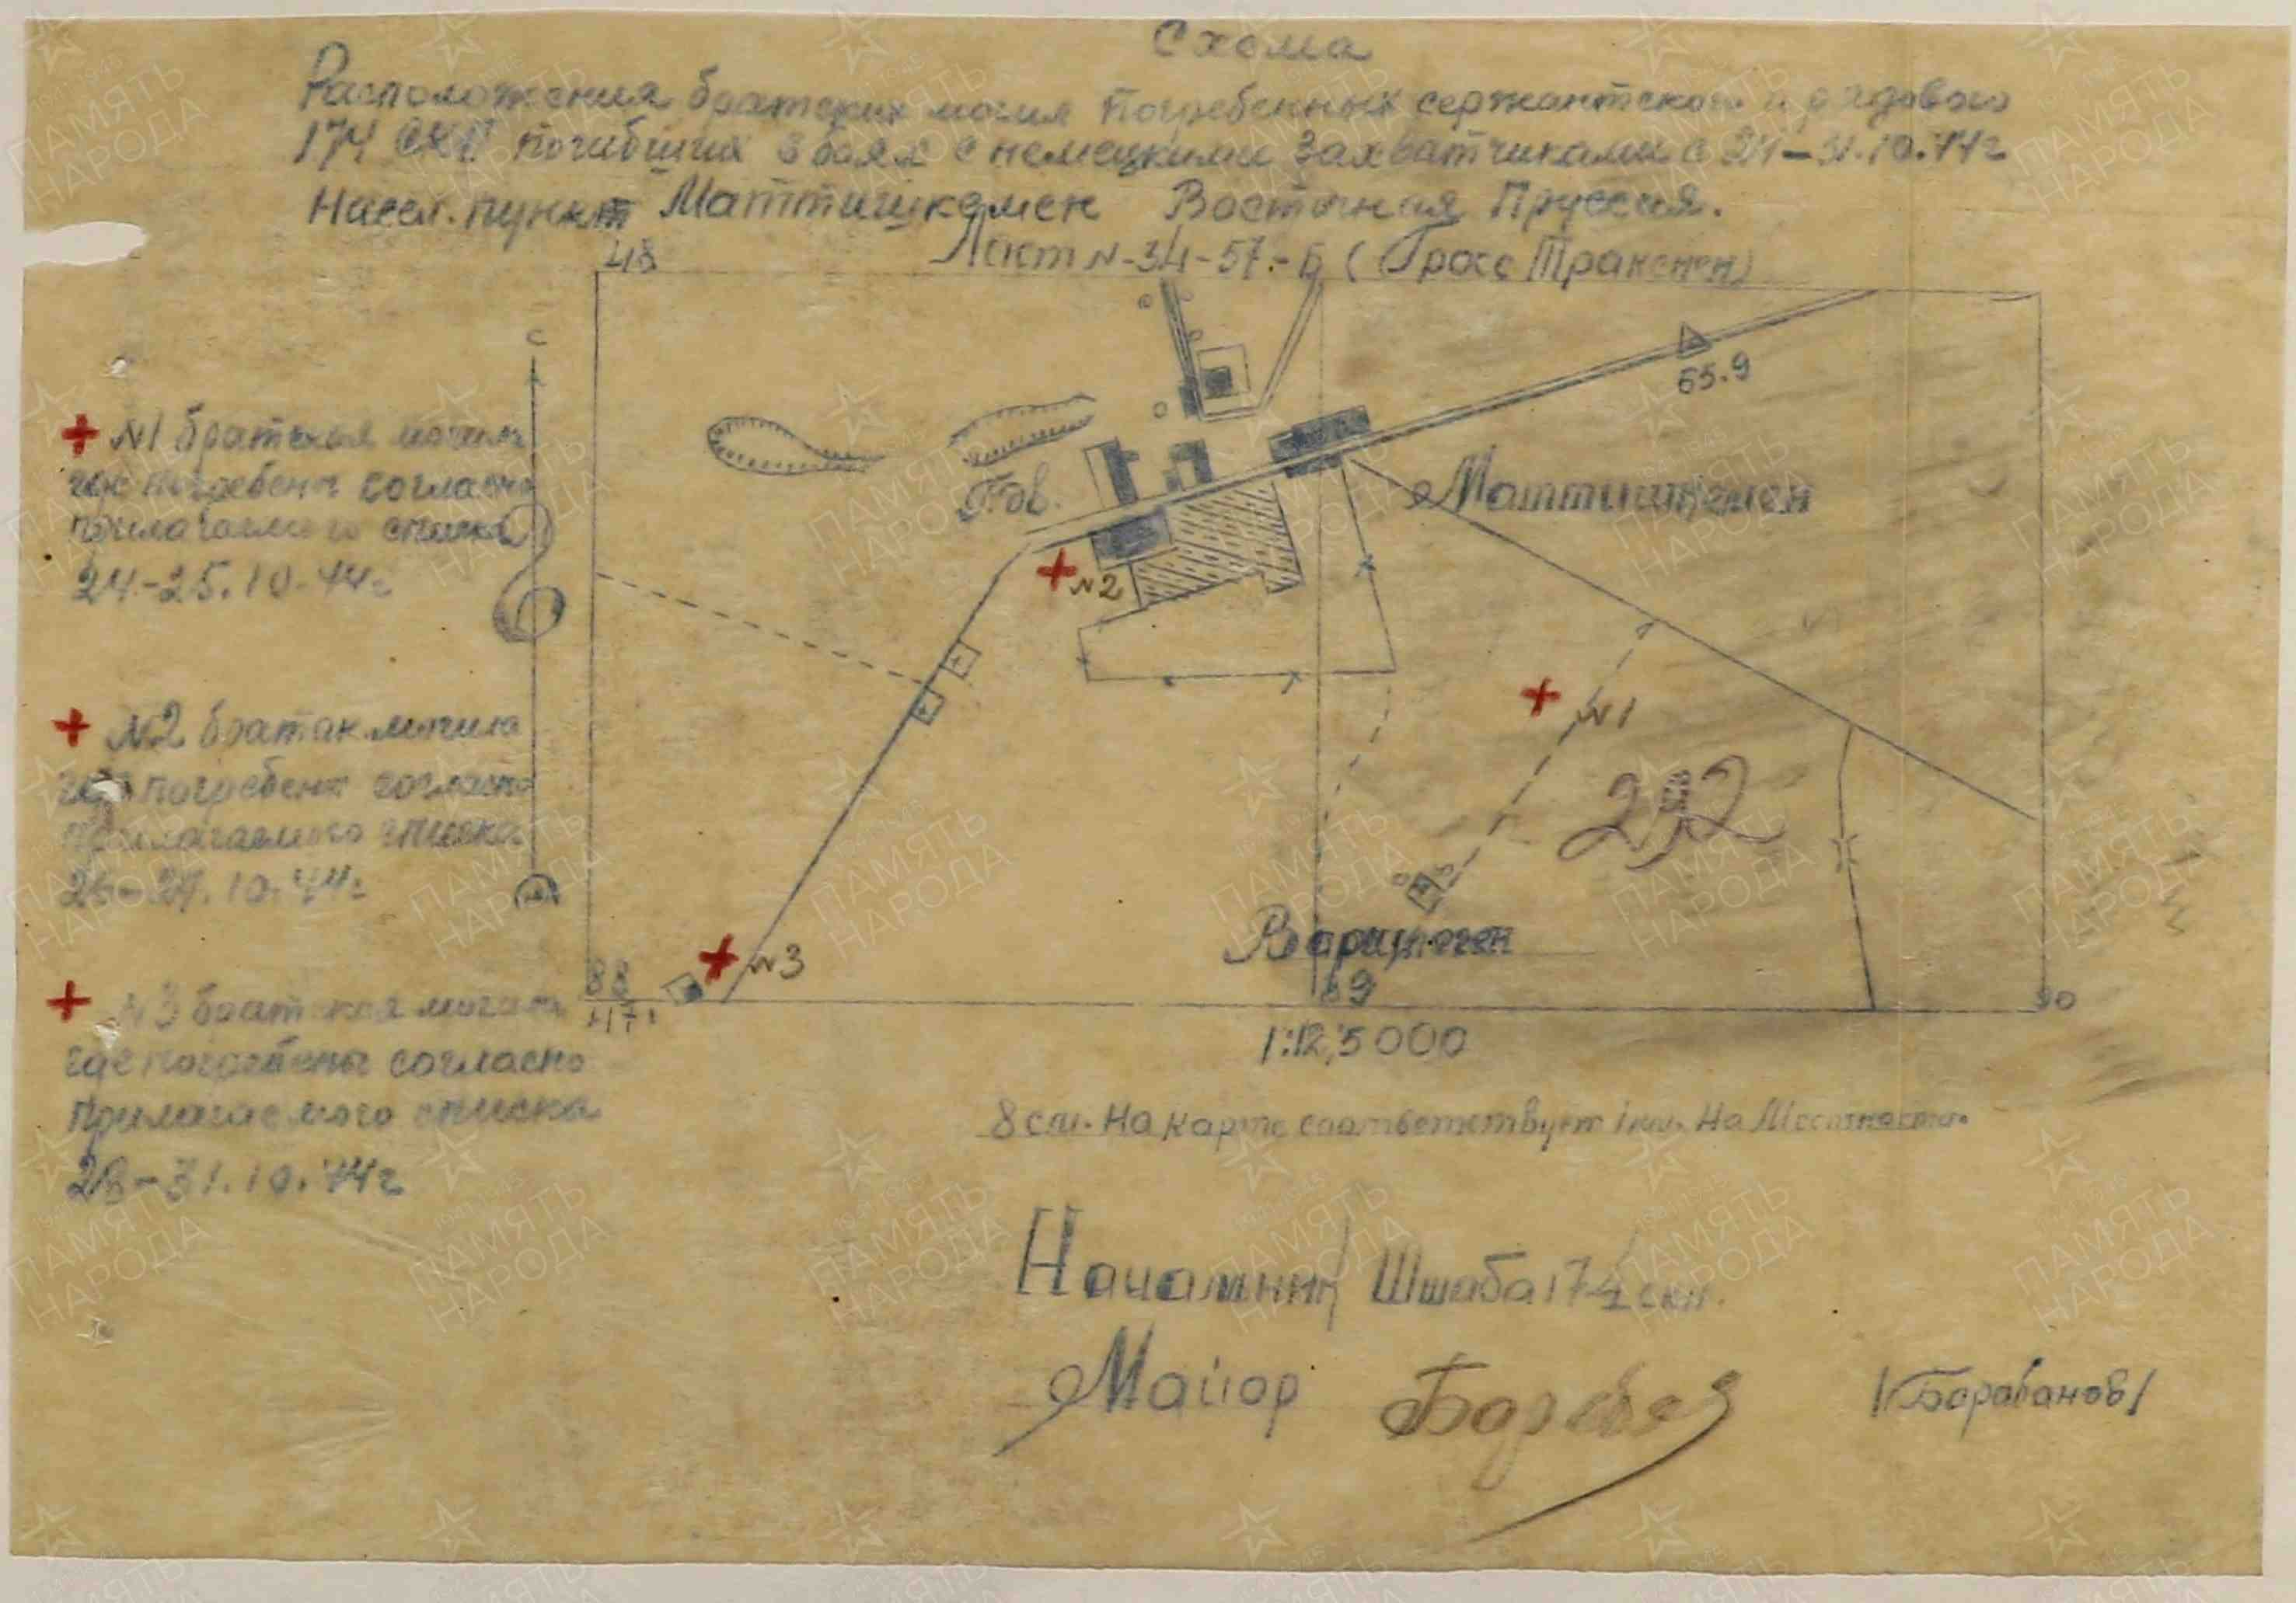 Схема
Расположения братских могил погребенных сержантского и рядового
174 СКП погибших в боях с немецкими захватчиками с 24-31.10.44г
Насел. пункт Маттишкемен Восточная Пруссия.
Лист N-34-57-Б (Гросс Тракенен)
48
С
65.9
+ №1 братская могила
где погребены согласно
прилагаемого списка
24-25.10.44г
Маттишкемен
Гов.
№2
+ №2 братск могила
где погребены согласно
прилагаемого списка
26-27.10.44г
№1
212
№3
88
47
89
90
+ №3 братская могила
где погребены согласно
прилагаемого списка
28-31.10.44г
1:12,5000
8 см. На карте соответствует 1 км. На Местности.
Начальник Штаба 174 скп.
Майор
/Барабанов/
ПАМЯТЬ НАРОДА